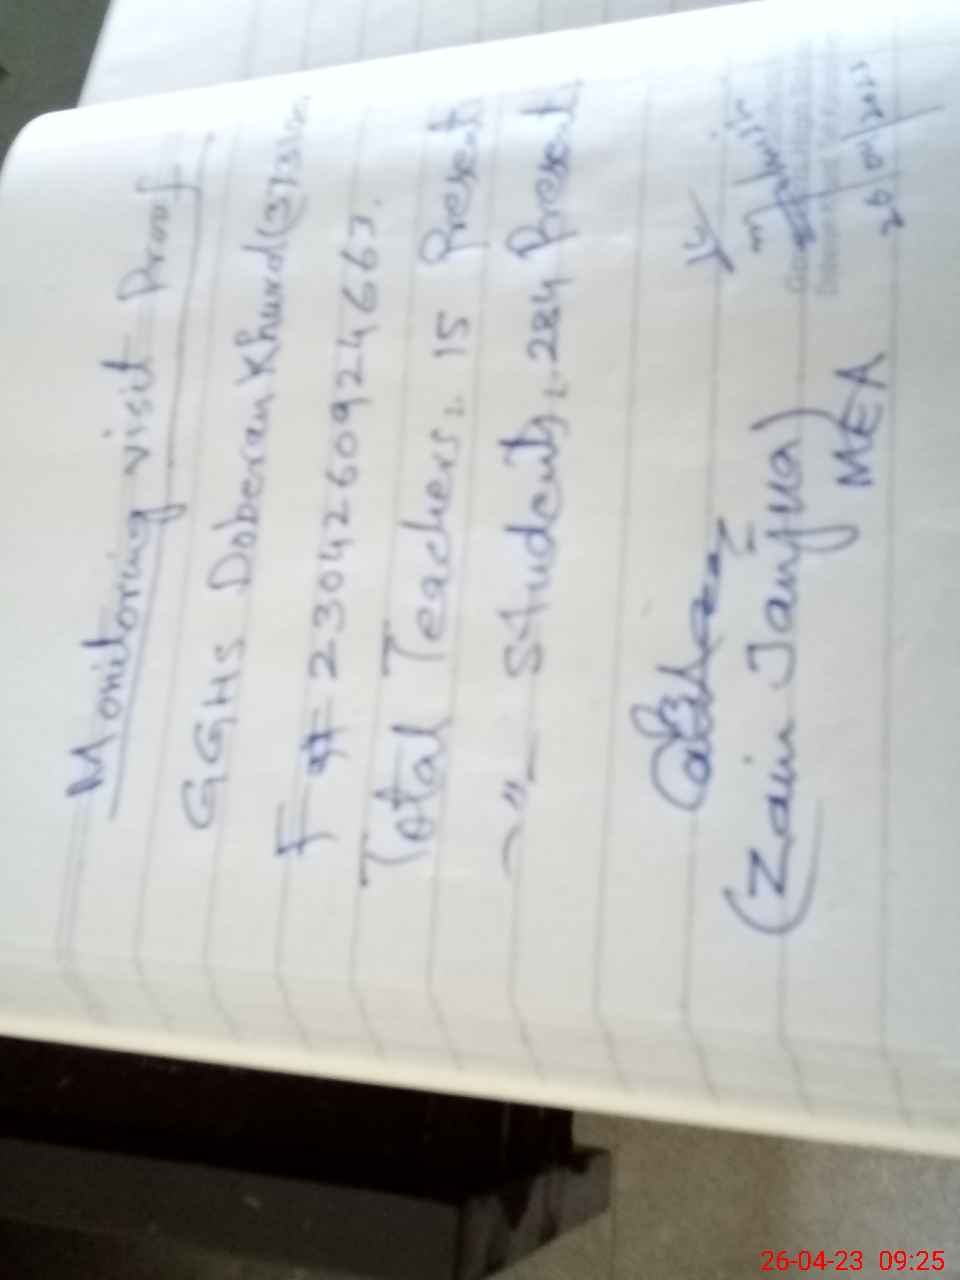 Monitoring visit Proof
GGHS Doberan Khurd (37310
F # 230426092466
Total Teachers: 15 Present
―〃― Students: 284 Present
(Zain Janjua)
MEA
26/04/2023
26-04-23 09:25